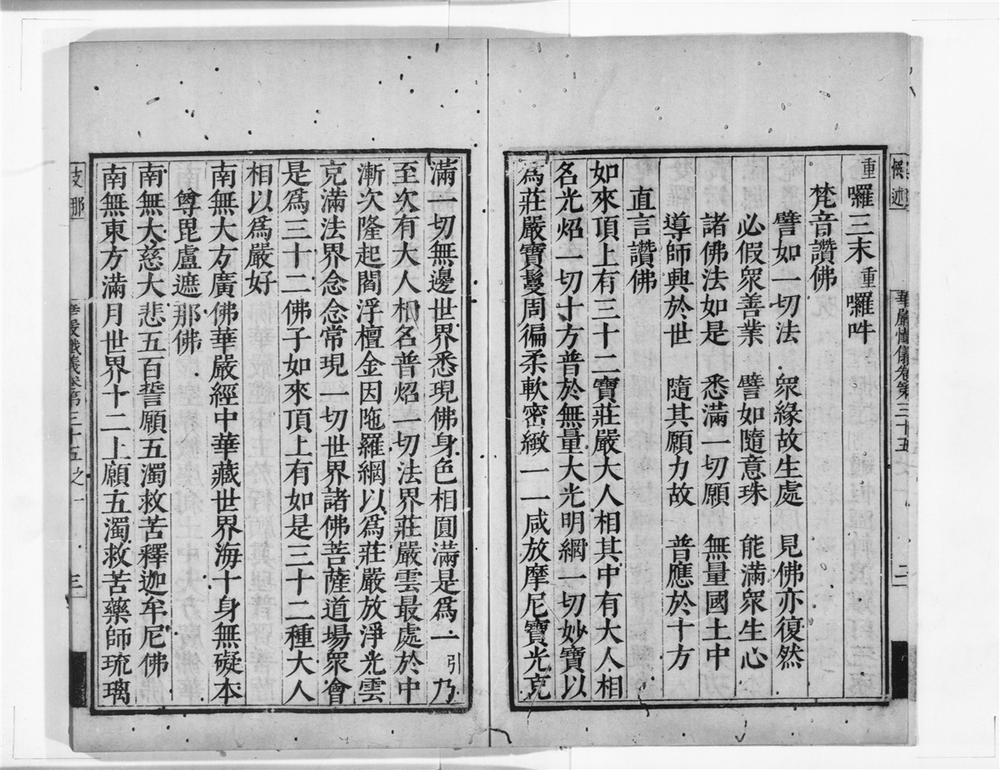 重囉三末重囉吽
梵音讚佛
譬如一切法　衆緣故生處　見佛亦復然
必假衆善業　譬如隨意珠　能滿衆生心
諸佛法如是　悉滿一切願　無量國土中
導師興於世　隨其願力故　普應於十方
直言讚佛
如來頂上有三十二寶莊嚴大人相其中有大人相
名光炤一切十方普於無量大光明網一切妙寶以
爲莊嚴寶鬘周徧柔軟密緻一一咸放摩尼寶光克
華嚴懺儀卷第三十五之一　二
滿一切無邊世界悉現佛身色相圓滿是爲一引乃
至次有大人相名普炤一切法界莊嚴雲最處於中
漸次隆起閻浮檀金因陁羅網以爲莊嚴放淨光雲
克滿法界念念常現一切世界諸佛菩薩道場衆會
是爲三十二佛子如來頂上有如是三十二種大人
相以爲嚴好
南無大方廣佛華嚴經中華藏世界海十身無礙本
尊毘盧遮那佛
南無大慈大悲五百誓願五濁救苦釋迦牟尼佛
南無東方滿月世界十二上願五濁救苦藥師琉璃
支那
華嚴懺儀卷第三十五之一　三